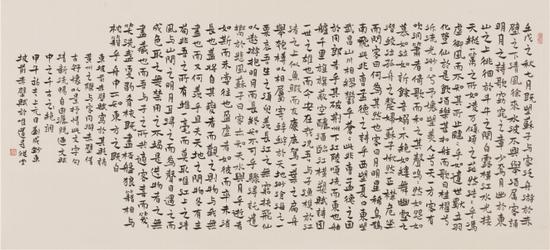 壬戌之秋七月既望蘇子與客泛舟游於赤
壁之下清風徐來水波不興舉酒屬客誦
明月之詩歌窈窕之章少焉月出於東
山之上徘徊於斗牛之間白露橫江水光接
天縱一葦之所如凌萬頃之茫然浩浩乎
虛御風而不知其所止飄飄乎如遺世獨立羽
化登仙於是飲酒樂甚扣舷而歌之歌曰桂棹兮
泝流光渺渺兮予懷望美人兮天一方客有
吹洞簫者倚歌而和之其聲嗚嗚然如怨如
慕如泣如訴餘音嫋嫋不絕如縷舞幽壑之
潛蛟泣孤舟之嫠婦蘇子愀然正襟危坐
而問客曰何為其然也客曰月明星稀烏鵲
南飛此非曹孟德之詩乎西望夏口東望
武昌山川相繆鬱乎蒼蒼此非孟德之困
於周郎者乎方其破荊州下江陵順流而東也舳
艫千里旌旗蔽空釃酒臨江橫槊賦詩固
一世之雄也而今安在哉況吾與子漁樵於江
渚之上侶魚蝦而友麋鹿駕一葉之扁舟
舉匏樽以相屬寄蜉蝣於天地渺滄海之一
粟哀吾生之須臾羨長江之無窮挾飛仙
以遨遊抱明月而長終知不可乎驟得託遺
響於悲風蘇子曰客亦知夫水與月乎逝者
如斯而未嘗往也盈虛者如彼而卒莫消
長也蓋將自其變者而觀之則物與我
皆無盡也而又何羨乎且夫天地之間物各有主
苟非吾之所有雖一毫而莫取惟江上之清
風與山間之明月耳得之而為聲目遇之而
成色取之無禁用之不竭是造物者之無
盡藏也而吾與子之所共適客喜而笑
洗盞更酌肴核既盡杯盤狼籍相與
枕藉乎舟中不知東方之既白
東坡前赤壁賦
坡前赤壁賦於